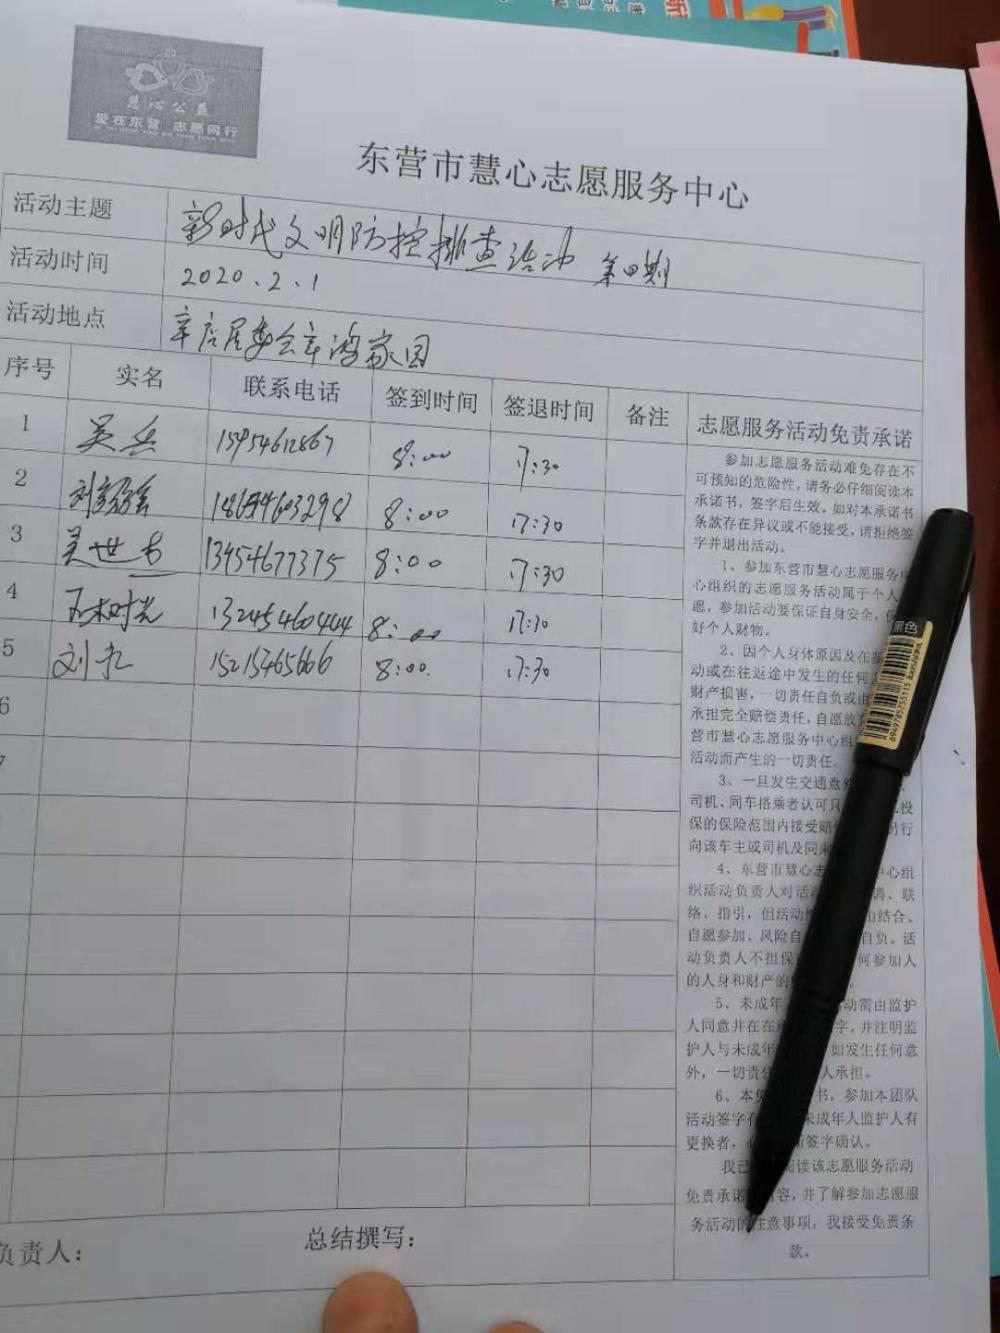 慧心公益
爱在东营 志愿同行
东营市慧心志愿服务中心
活动主题 新时代文明防控排查活动 第四期
活动时间 2020.2.1
活动地点 辛店居委会辛鸿家园
序号 实名 联系电话 签到时间 签退时间 备注 志愿服务活动免责承诺
1 吴 15954612867 8:00 17:30
2 刘 8:00 17:30
3 吴世 13454677375 8:00 17:30
4 13245460444 8:00 17:30
5 刘 15215465666 8:00. 17:30
6
7
参加志愿服务活动难免存在不
可预知的危险性,请务必仔细阅读本
承诺书,签字后生效。如对本承诺书
条款存在异议或不能接受,请拒绝签
字并退出活动。
1、参加东营市慧心志愿服务中
心组织的志愿服务活动属于个人
愿,参加活动要保证自身安全,
好个人财物。
2、因个人身体原因及在
动或在往返途中发生的任何
财产损害,一切责任自负或由
承担完全赔偿责任,自愿放
营市慧心志愿服务中心组
活动而产生的一切责任。
3、一旦发生交通意外
司机、同车搭乘者认可只 投
保的保险范围内接受赔 另行
向该车主或司机及同乘
4、东营市慧心志 中心组
织活动负责人对活 调、联
络、指引,但活动 由结合、
自愿参加、风险自 自负。活
动负责人不担保 何参加人
的人身和财产的 。
5、未成年 动需由监护
人同意并在在 字,并注明监
护人与未成年 如发生任何意
外,一切责任 人承担。
6、本免 书,参加本团队
活动签字 未成年人监护人有
更换者, 新签字确认。
我已 阅读该志愿服务活动
免责承诺 内容,并了解参加志愿服
务活动的注意事项,我接受免责条
款。
负责人: 总结撰写:
黑色
6949785755115